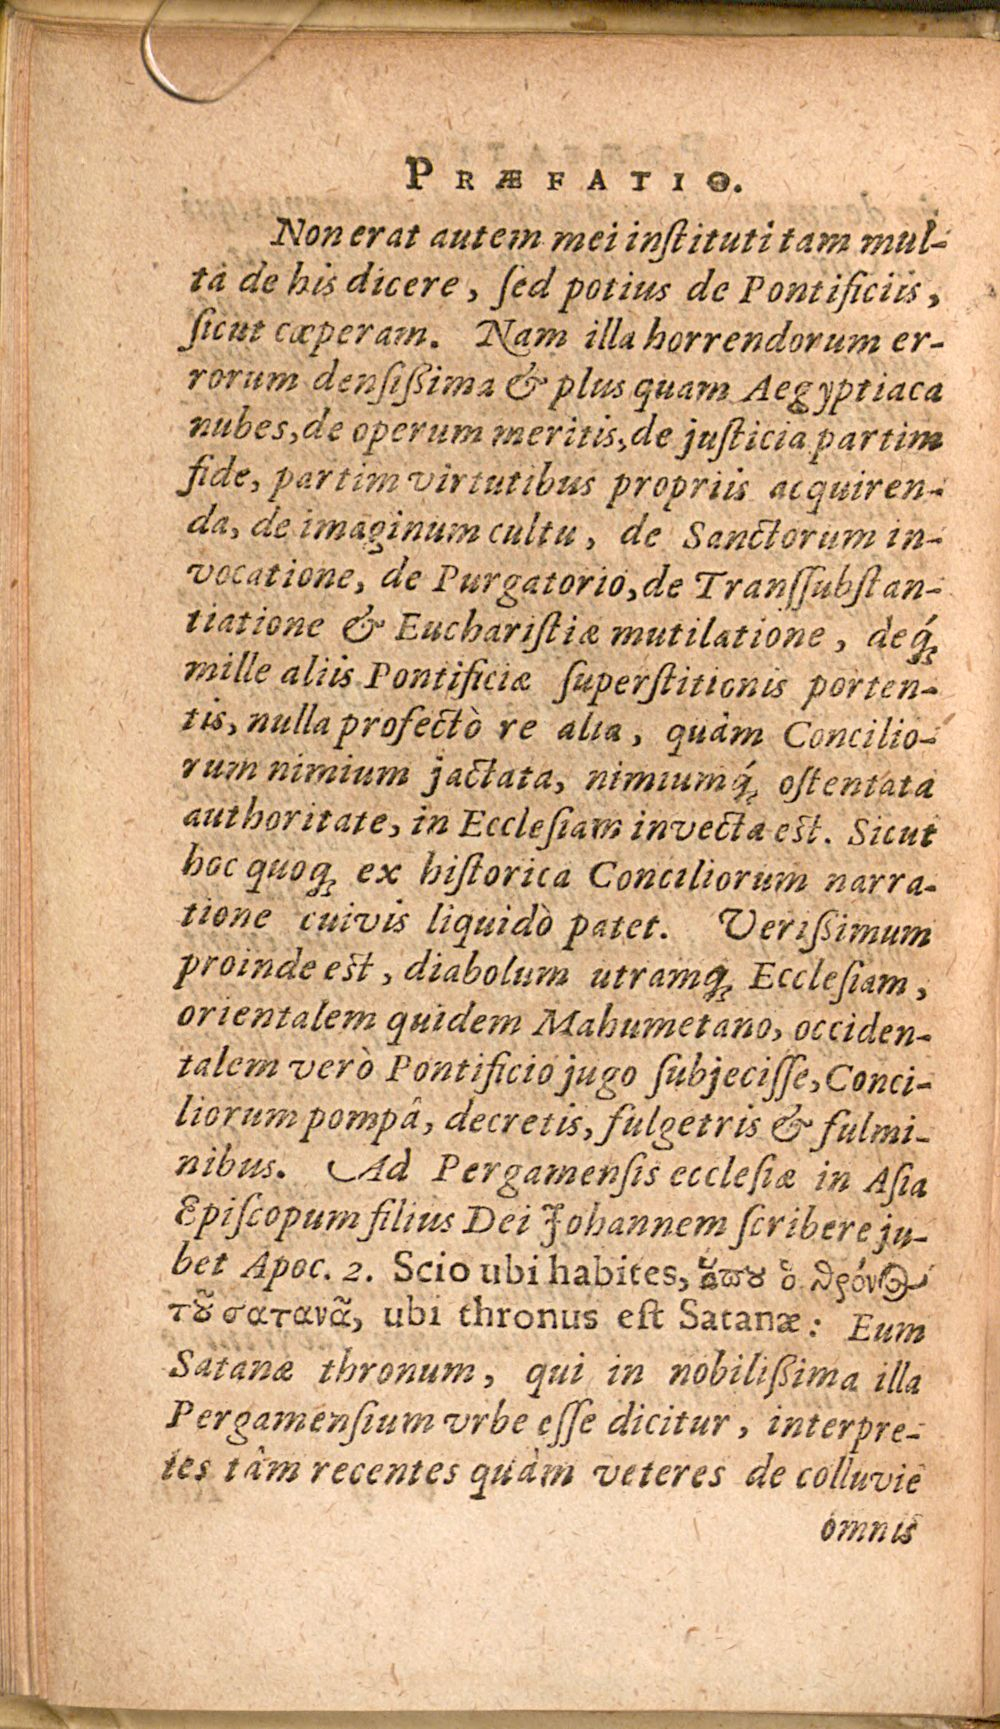 PRÆFATIO.
Non erat autem mei inſtituti tam mul-
ta de his dicere, ſed potius de Pontificiis,
ſicut cœperam. Nam illa horrendorum er-
rorum denſiſſima & plus quam Aegyptiaca
nubes, de operum meritis, de juſticia partim
fide, partim virtutibus propriis acquiren-
da, de imaginum cultu, de Sanctorum in-
vocatione, de Purgatorio, de Transſubſtan-
tiatione & Euchariſtiæ mutilatione, deq́;
mille aliis Pontificiæ ſuperſtitionis porten-
tis, nulla profectò re alia, quàm Concilio-
rum nimium jactata, nimiumq́; oſtentata
authoritate, in Eccleſiam invecta eſt. Sicut
hoc quoq; ex hiſtorica Conciliorum narra-
tione cuivis liquidò patet. Veriſſimum
proinde eſt, diabolum utramq; Eccleſiam,
orientalem quidem Mahumetano, occiden-
talem verò Pontificio jugo ſubjeciſſe, Conci-
liorum pompâ, decretis, fulgetris & fulmi-
nibus. Ad Pergamenſis eccleſiæ in Aſia
Epiſcopum filius Dei Johannem ſcribere ju-
bet Apoc. 2. Scio ubi habites, ὅπου ὁ θρόνος
τοῦ σατανᾶ, ubi thronus eſt Satanæ: Eum
Satanæ thronum, qui in nobiliſſima illa
Pergamenſium vrbe eſſe dicitur, interpre-
tes tâm recentes quàm veteres de colluvie
omnis